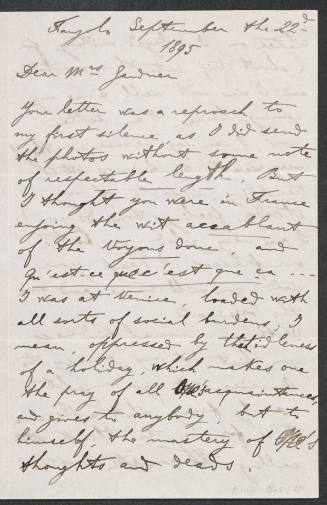 September the 22d
1895
Dear Mrs Gardner
Your letter was a reproach to
my first silence, as I did send
the photos without some note
of respectable length. But
I thought you were in France
enjoing the wit accablant
of the Voyons donc, and
qu'est-ce que c'est que ca ---
I was at Venice, loaded with
all sorts of social burdens, I
mean, oppressed by that idleness
of a holiday, which makes one
the pray of all One's acquaintances,
and gives to anybody, but to
himself, the mastery of One's
thoughts and deads.